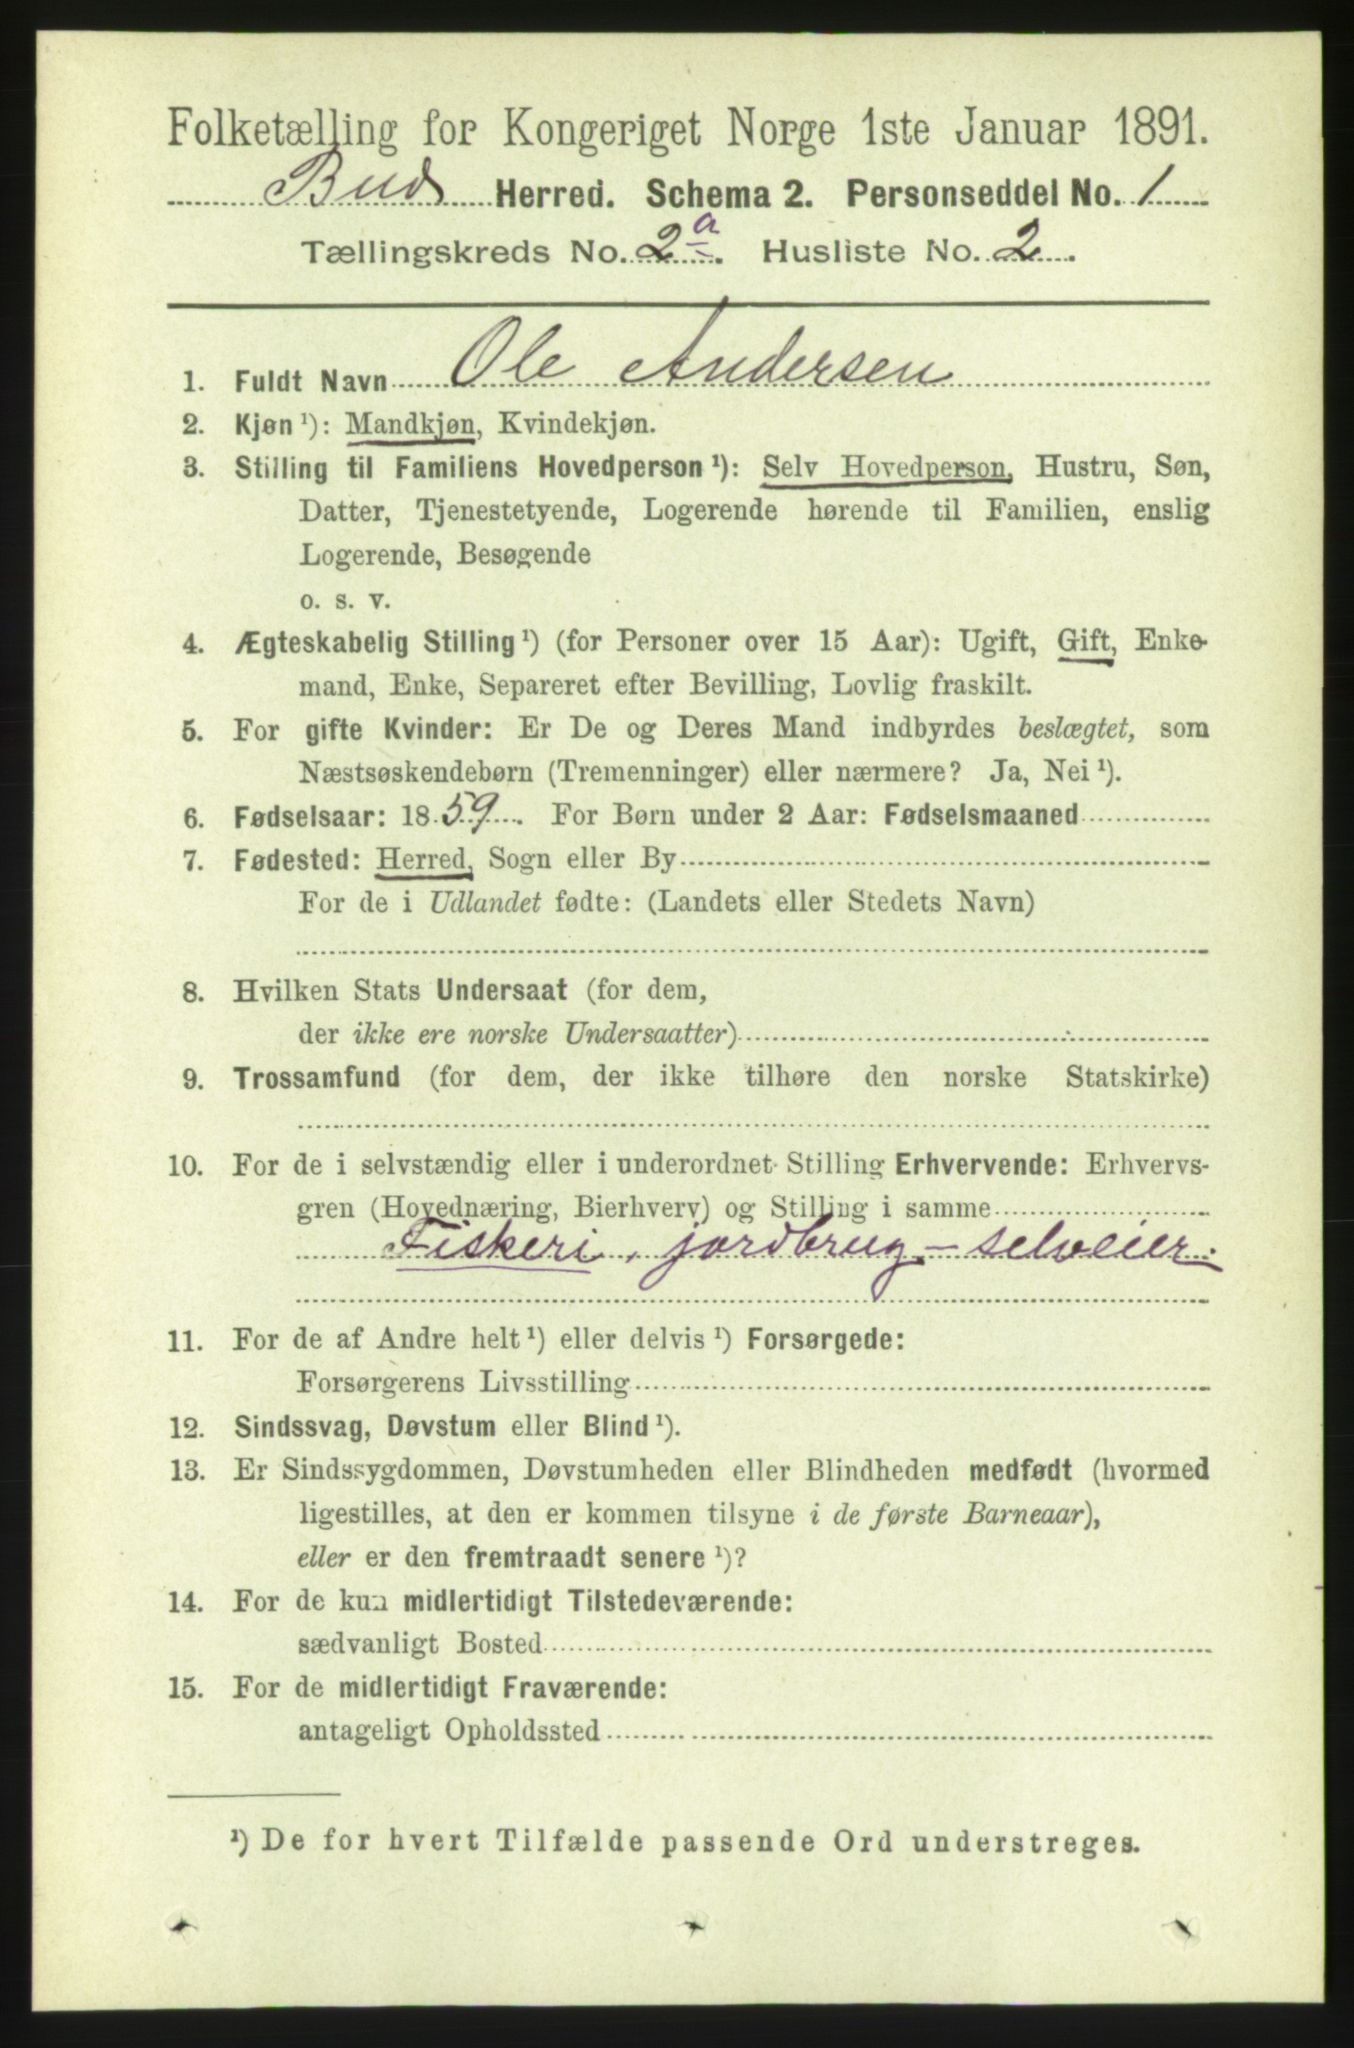 Folketælling for Kongeriget Norge 1ste Januar 1891.
Bud Herred. Schema 2. Personseddel No. 1
Tællingskreds No. 2a. Husliste No. 2.
1. Fuldt Navn Ole Andersen
2. Kjøn ¹): Mandkjøn, Kvindekjøn.
3. Stilling til Familiens Hovedperson ¹): Selv Hovedperson, Hustru, Søn,
Datter, Tjenestetyende, Logerende hørende til Familien, enslig
Logerende, Besøgende
o. s. v.
4. Ægteskabelig Stilling ¹) (for Personer over 15 Aar): Ugift, Gift, Enke-
mand, Enke, Separeret efter Bevilling, Lovlig fraskilt.
5. For gifte Kvinder: Er De og Deres Mand indbyrdes beslægtet, som
Næstsøskendebørn (Tremenninger) eller nærmere? Ja, Nei ¹).
6. Fødselsaar: 1859. For Børn under 2 Aar: Fødselsmaaned
7. Fødested: Herred, Sogn eller By
For de i Udlandet fødte: (Landets eller Stedets Navn)
8. Hvilken Stats Undersaat (for dem,
der ikke ere norske Undersaatter)
9. Trossamfund (for dem, der ikke tilhøre den norske Statskirke)
10. For de i selvstændig eller i underordnet Stilling Erhvervende: Erhvervs-
gren (Hovednæring, Bierhverv) og Stilling i samme
Fiskeri, jordbrug - selveier.
11. For de af Andre helt ¹) eller delvis ¹) Forsørgede:
Forsørgerens Livsstilling
12. Sindssvag, Døvstum eller Blind ¹).
13. Er Sindssygdommen, Døvstumheden eller Blindheden medfødt (hvormed
ligestilles, at den er kommen tilsyne i de første Barneaar),
eller er den fremtraadt senere ¹)?
14. For de kun midlertidigt Tilstedeværende:
sædvanligt Bosted
15. For de midlertidigt Fraværende:
antageligt Opholdssted
¹) De for hvert Tilfælde passende Ord understreges.